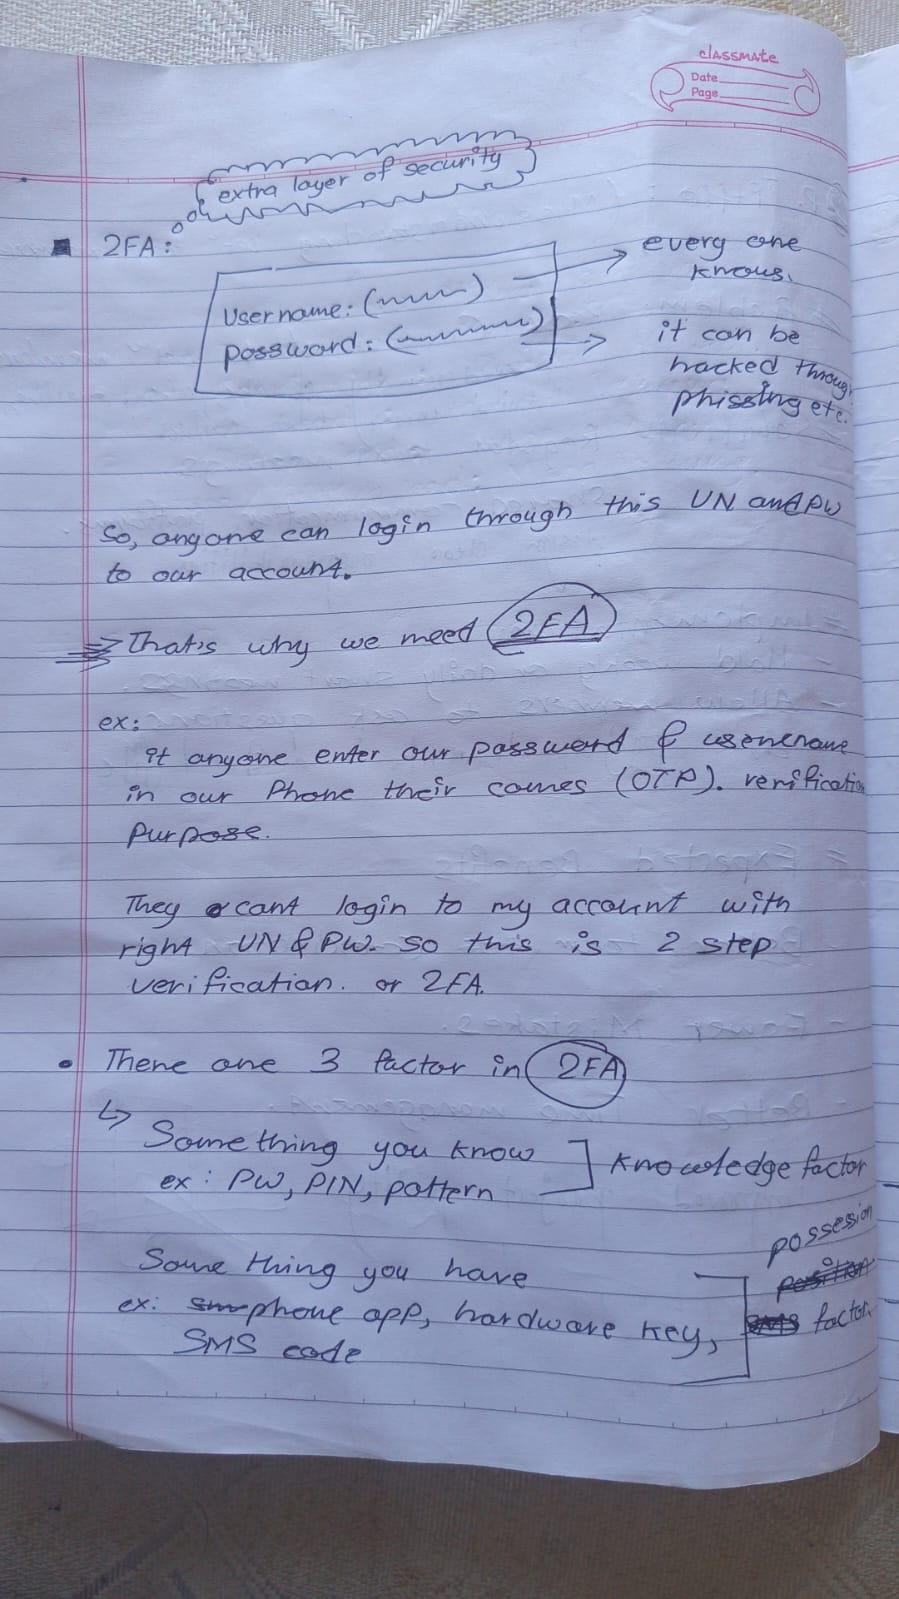 classmate
Date
Page
extra layer of security
2FA:
Username: (
password: (
every one
knows.
it can be
hacked through
phissing etc.
So, anyone can login through this UN and PW
to our account.
That's why we need 2FA
ex:
if anyone enter our password & username
in our Phone their comes (OTP). verification
purpose.
They cant login to my account with
right UN & PW. so this is 2 step
verification. or 2FA.
There are 3 factor in 2FA
Something you know
ex: PW, PIN, pattern
Knowledge factor
Something you have
ex: phone app, hardware key,
SMS code
possession
position
SMS factor.